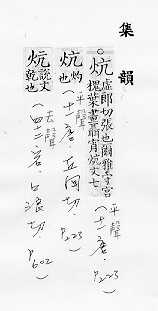 集韻
○炕 虛郎切張也爾雅守宮
槐葉晝聶宵炕文七
(平聲
十一唐,
P.223)
炕 灼
也
(平聲
十一唐,丘岡切,
P.223)
炕 說文
乾也
(去聲
四十二宕,口浪切,
P.602)